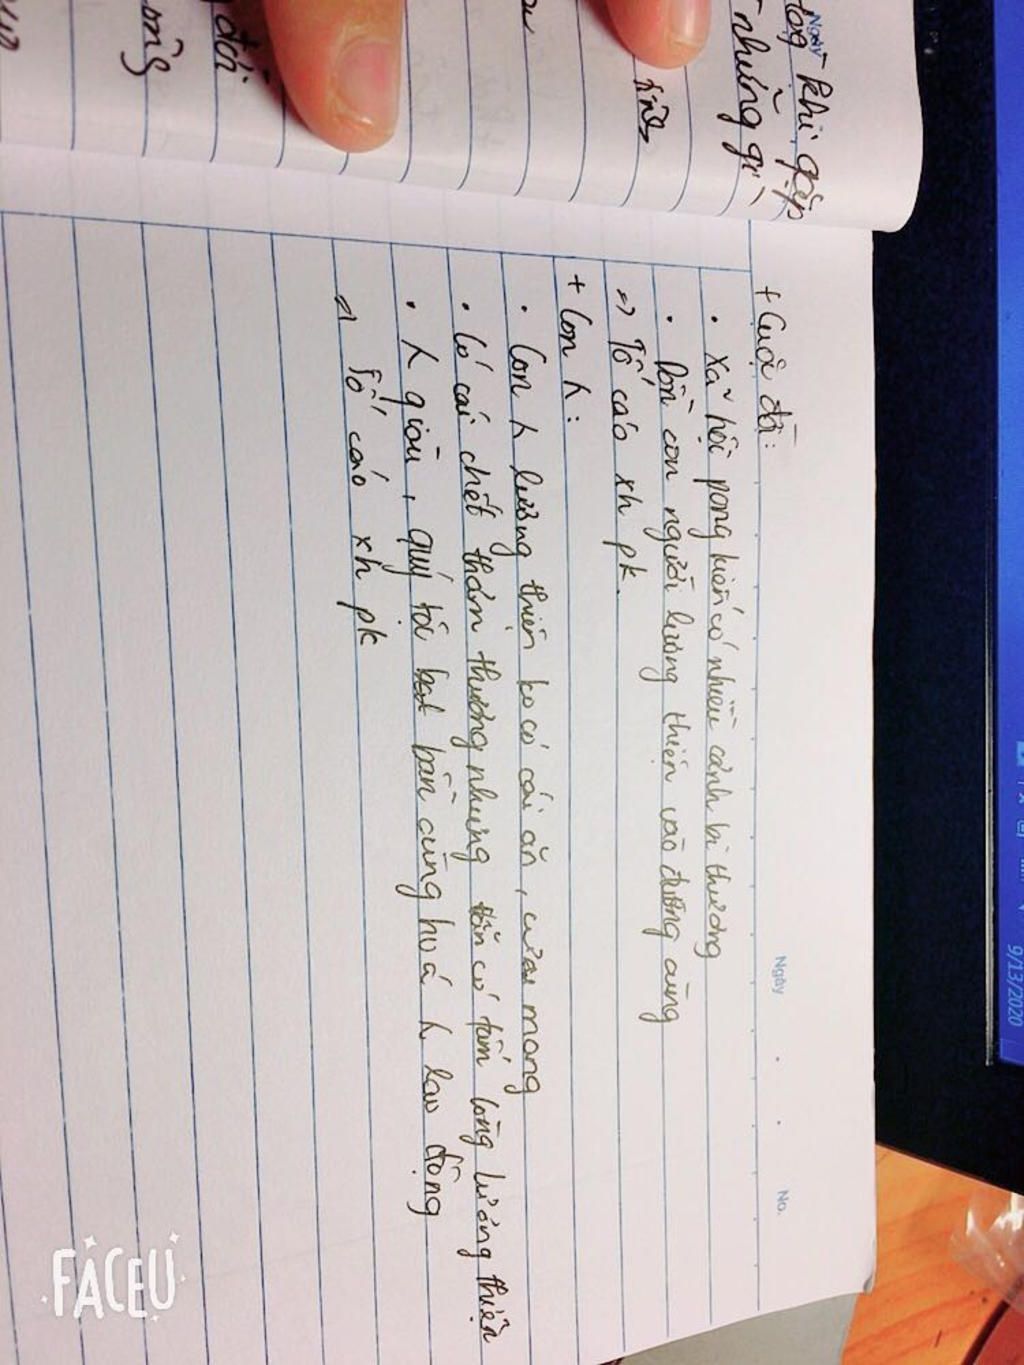 + Cuộc đời:
• Xã hội pong kiến có nhiều cảnh bi thương
• Dồn con người lương thiện vào đường cùng
=> Tố cáo xh pk.
+ Con h:
• Con h lương thiện ko có cái ăn, cưu mang
• Có cái chết thảm thương nhưng vẫn có tấm lòng lương thiện
• h giàu, quý tộc bần cùng hoá h lao động
=> Tố cáo xh pk
Ngày
No.
Ngày
khi gặp
những gì
đời
9/13/2020
FACEU